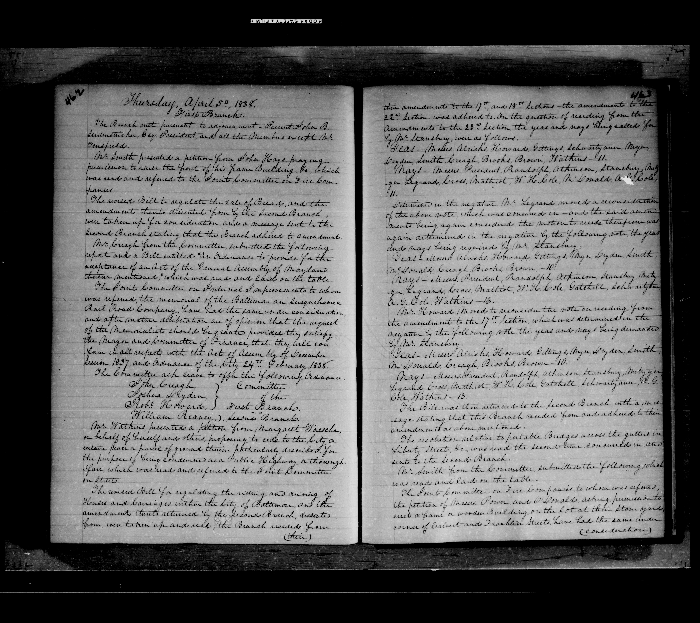 462
Thursday, April 5th, 1838.
First Branch.
The Branch met pursuant to adjournment - Present John B.
Seidenstricker Esq. President and all the Members except Mr.
Mr. Smith presented a petition from John Hays praying
permission to raise the front of his frame Building, &c, which
was read and referred to the Joint Committee on Fire Com-
panies.
The unread Bill to regulate the sale of Bread, and the
amendments thereto dissented from by the Second Branch
were taken up for consideration and a message sent to the
Second Branch stating that this Branch adhered to amendment.
Mr. Creagh from the Committee, submitted the following
report and a Bill entitled "An Ordinance to provide for the
acceptance of an Act of the General Assembly of Maryland
therein mentioned," which was read and laid on the table.
The Joint Committee on Internal Improvements to whom
was referred, the memorial of the Baltimore and Susquehanna
Rail Road Company, have had the same under consideration
and after mature deliberation are of opinion that the request
of the Memorialist should be granted provided they satisfy
the Mayor and Committee of Finance, that they have con
formed in all respects with the Act of Assembly of December
Session 1837 and Ordinance of the city 24th February 1838.
The Committee ask leave to offer the following Ordinance.
John Creagh } Committee
Joshua Dryden } of the
Robt. Howard } First Branch.
William Reaney, } Second Branch.
Mr. Watkins presented a petition from Margaret
in behalf of herself and others, proposing to cede to the city a
certain piece or parcel of ground therein particularly described, for
the purpose of being condemned as a Public Highway or thorough
fare which was read and referred to the Joint Committee
on
The unread Bill for regulating the and of
Horses and Carriages within the City of Baltimore and the
amendments thereto returned by the Second Branch, dissented
from were taken up and read, the Branch receded from
(their)
463
their amendments to the 17th and 18th Sections - the amendments to the
22d Section was adhered to. On the question of receding from the
Amendments to the 23d Section the yeas and nays being called for
by Mr. Stansbury, were as follows.
Yeas - Messrs Howard, Gittings, Schwartzauer, Mayo
Dryden, Smith, Creagh, Brooks, Brown, Watkins - 11.
Nays - Messrs President, Randolph, Atkinson, Stansbury, Murty
Legrand, Cross, Battist, W. H. Cole, McDonald, Cole
11.
Determined in the negative Mr. Legrand moved a reconsideration
of the above vote which was concurred in - and the said amend
ment being again considered the motion to recede therefrom was
again determined in the negative by the following vote the yeas
and nays being required by Mr. Stansbury.
Yeas Messrs Howard Gittings Mayo Dryden Smith
McDonald Creagh Brooks Brown - 10
Nays - Messrs President, Randolph Atkinson, Stansbury
Legrand, Cross, Battist, W. H. Cole, Gatchell, Schwartzauer
Cole, Watkins - 13.
Mr. Howard moved to reconsider the vote on receding from
the amendment to the 17th Section, which was determined in the
negative by the following vote the yeas and nays being demanded
by Mr. Stansbury.
Yeas - Messrs Howard Gittings Mayo Dryden, Smith,
McDonald, Creagh, Brooks, Brown - 10.
Nays - Messrs President, Randolph Atkinson Stansbury
Legrand Cross, Battist W. H. Cole Gatchell Schwartzauer
Cole Watkins - 13
The Bill was then returned to the Second Branch with a mes
sage stating that this Branch receded from and adhered to their
amendments as above mentioned.
The resolution relative to portable Bridges across the gutters in
Liberty Street, &c, was read the second time concurred in and
sent to the Second Branch.
Mr. Smith from the Committee, submitted the following which
was read and laid on the table.
The Joint Committee on Fire Companies to whom was referred,
the petition of and McDonald asking permission to
erect a frame or wooden Building on the lot at their Stone yard,
corner of Calvert and Franklin Streets, have had the same under
(consideration)